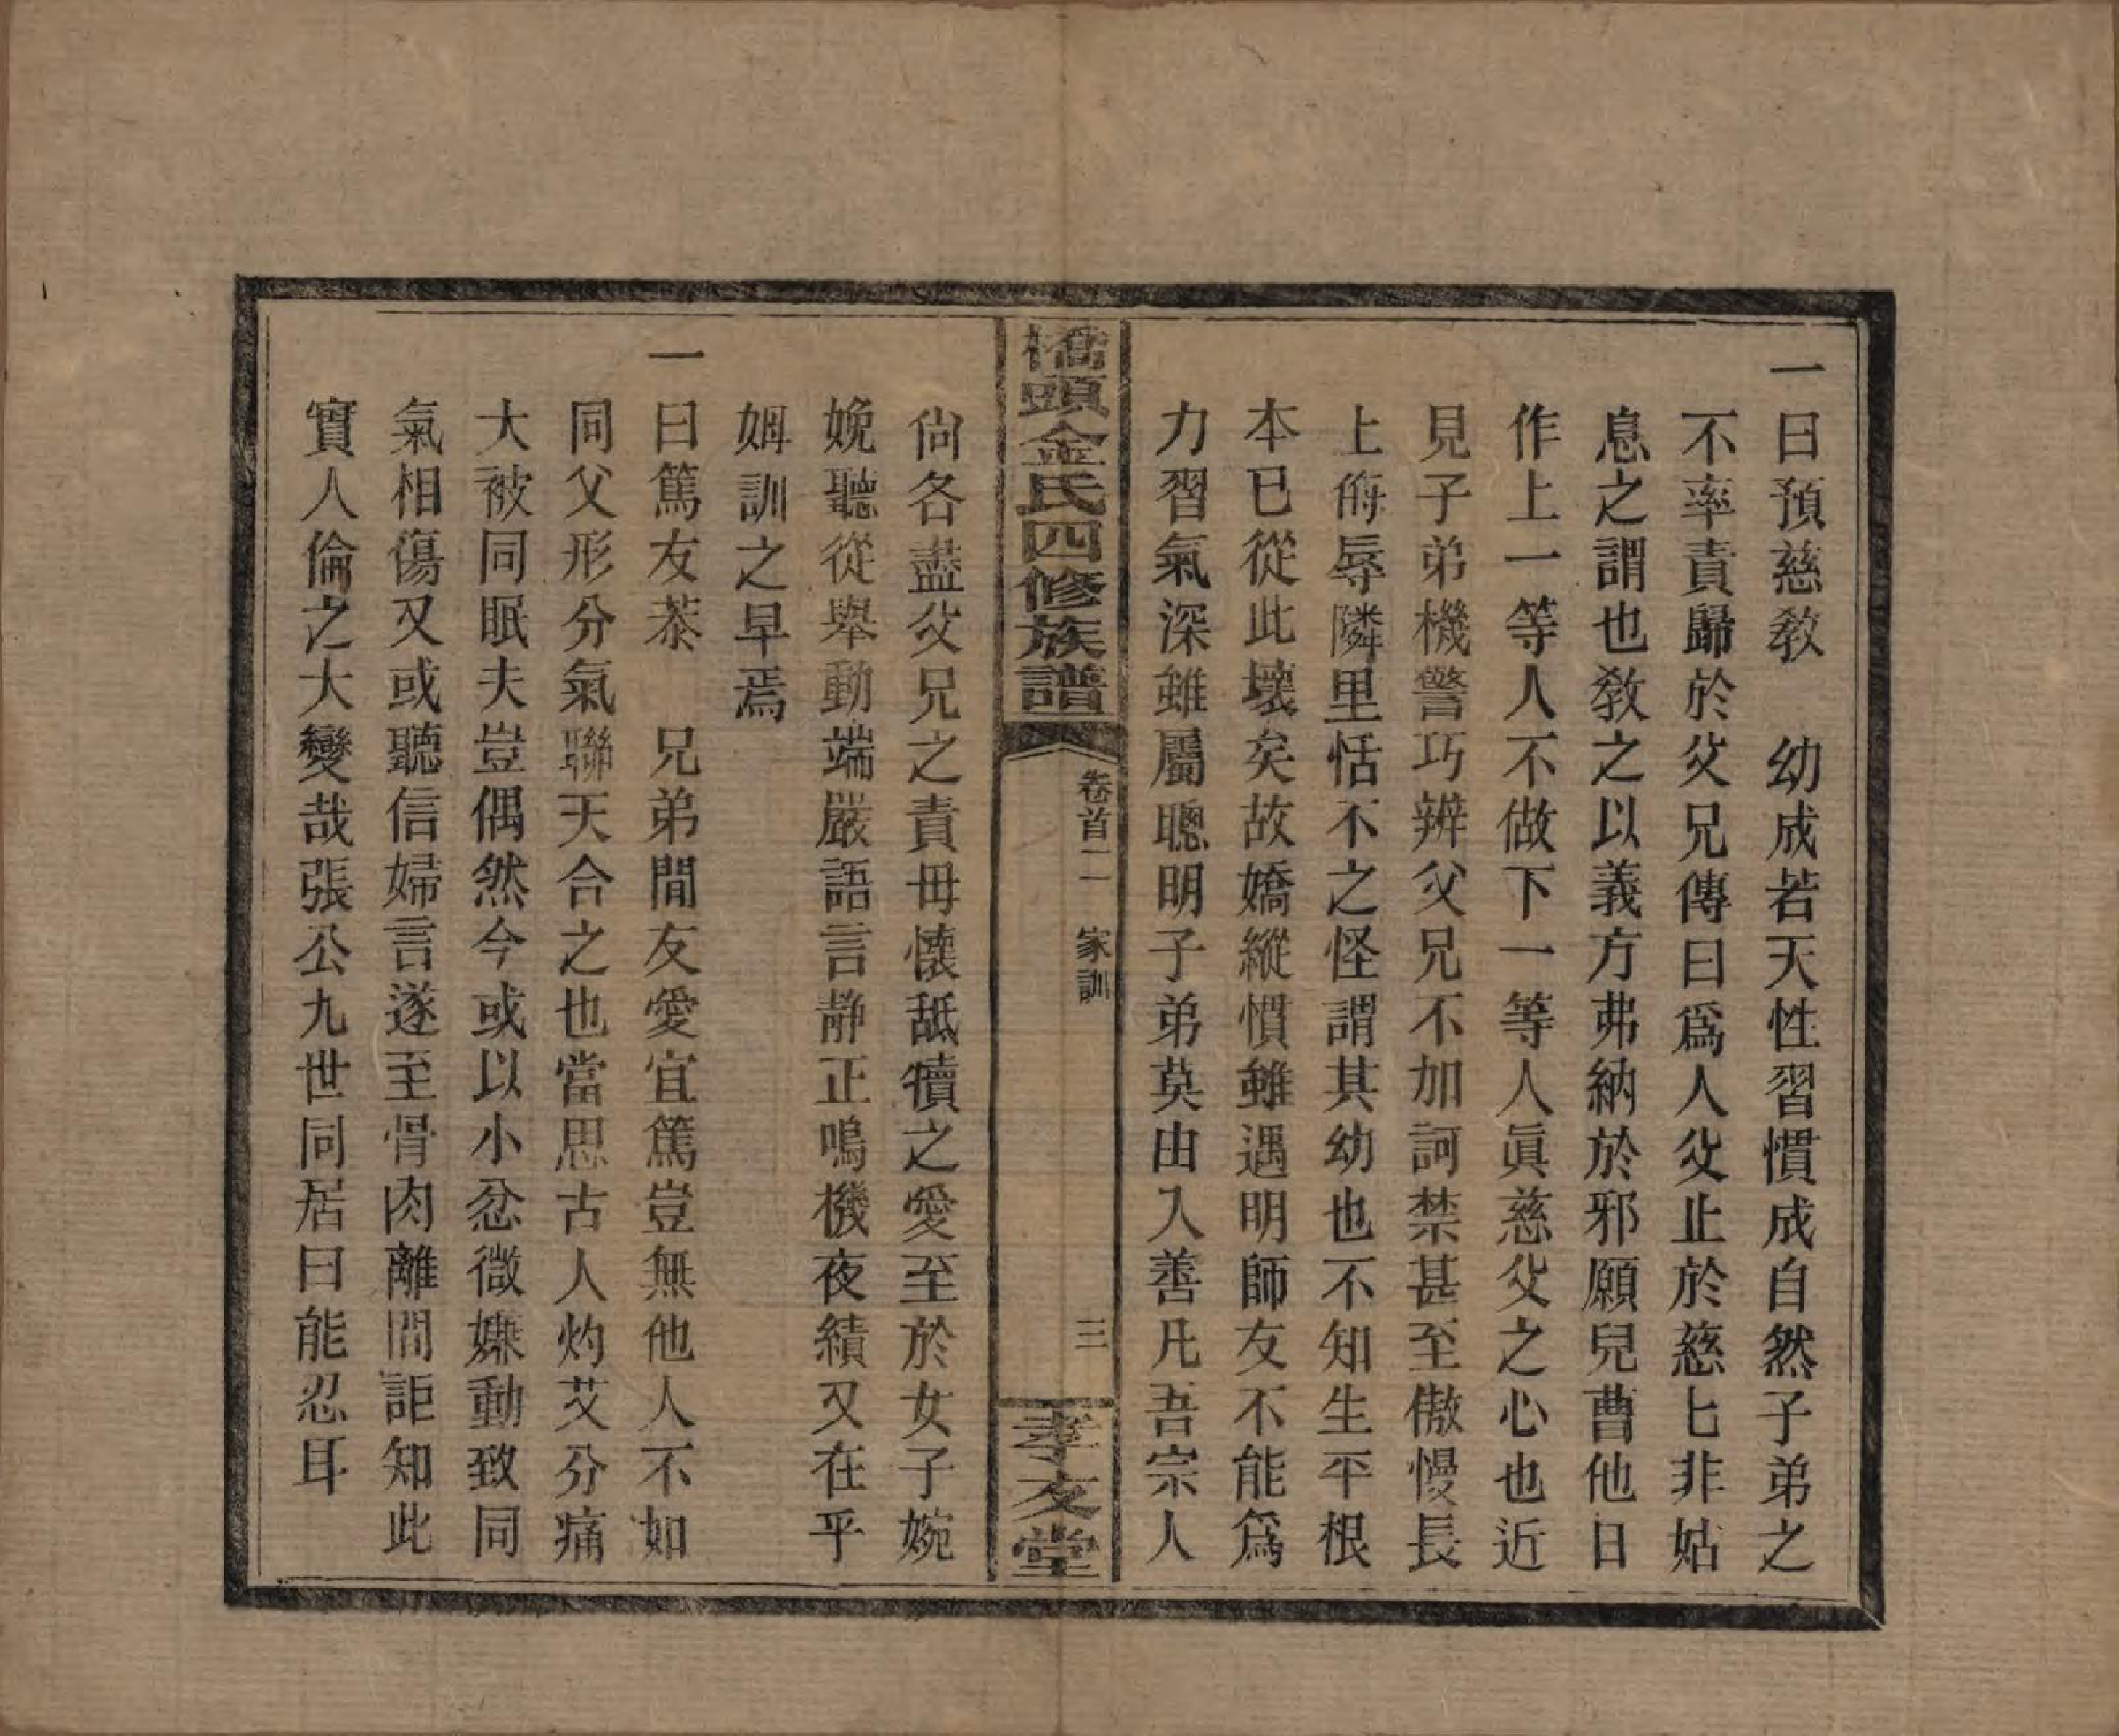 一曰預慈敎　幼成若天性習慣成自然子弟之
不率責歸於父兄傳曰爲人父止於慈匕非姑
息之謂也敎之以義方弗納於邪願兒曹他日
作上一等人不做下一等人眞慈父之心也近
見子弟機警巧辨父兄不加訶禁甚至傲慢長
上侮辱隣里恬不之怪謂其幼也不知生平根
本已從此壞矣故嬌縱慣雖遇明師友不能爲
力習氣深雖屬聰明子弟莫由入善凡吾宗人
橋頭金氏四修族譜
卷首二　家訓
三
孝友堂
尙各盡父兄之責毋懷舐犢之愛至於女子婉
娩聽從舉動端嚴語言静正鳴機夜績又在乎
姆訓之早焉
一曰篤友恭　兄弟閒友愛宜篤豈無他人不如
同父形分氣聯天合之也當思古人灼艾分痛
大被同眠夫豈偶然今或以小忿微嫌動致同
氣相傷又或聽信婦言遂至骨肉離間詎知此
實人倫之大變哉張公九世同居曰能忍耳